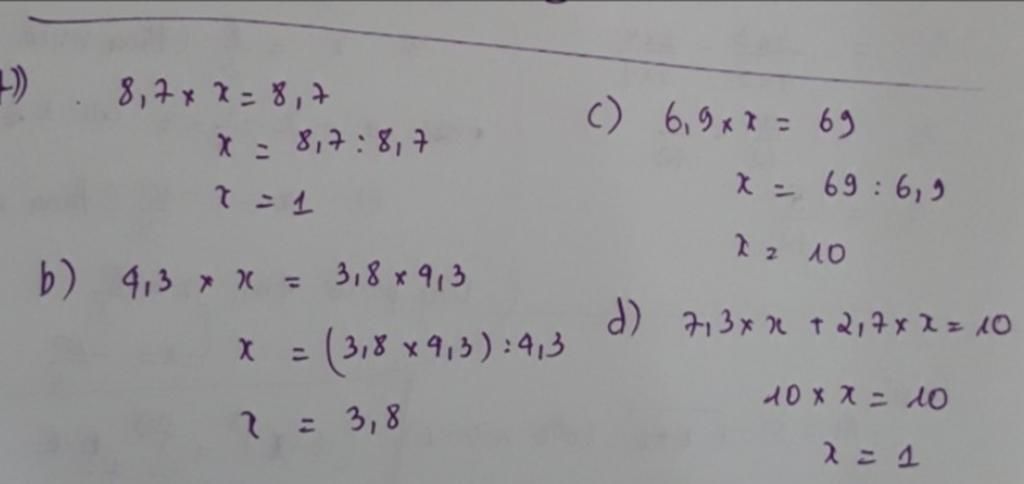 a) 8,7 x x = 8,7
x = 8,7 : 8,7
x = 1
b) 4,3 x x = 3,8 x 4,3
x = (3,8 x 4,3) : 4,3
x = 3,8
c) 6,9 x x = 69
x = 69 : 6,9
x = 10
d) 7,3 x x + 2,7 x x = 10
10 x x = 10
x = 1